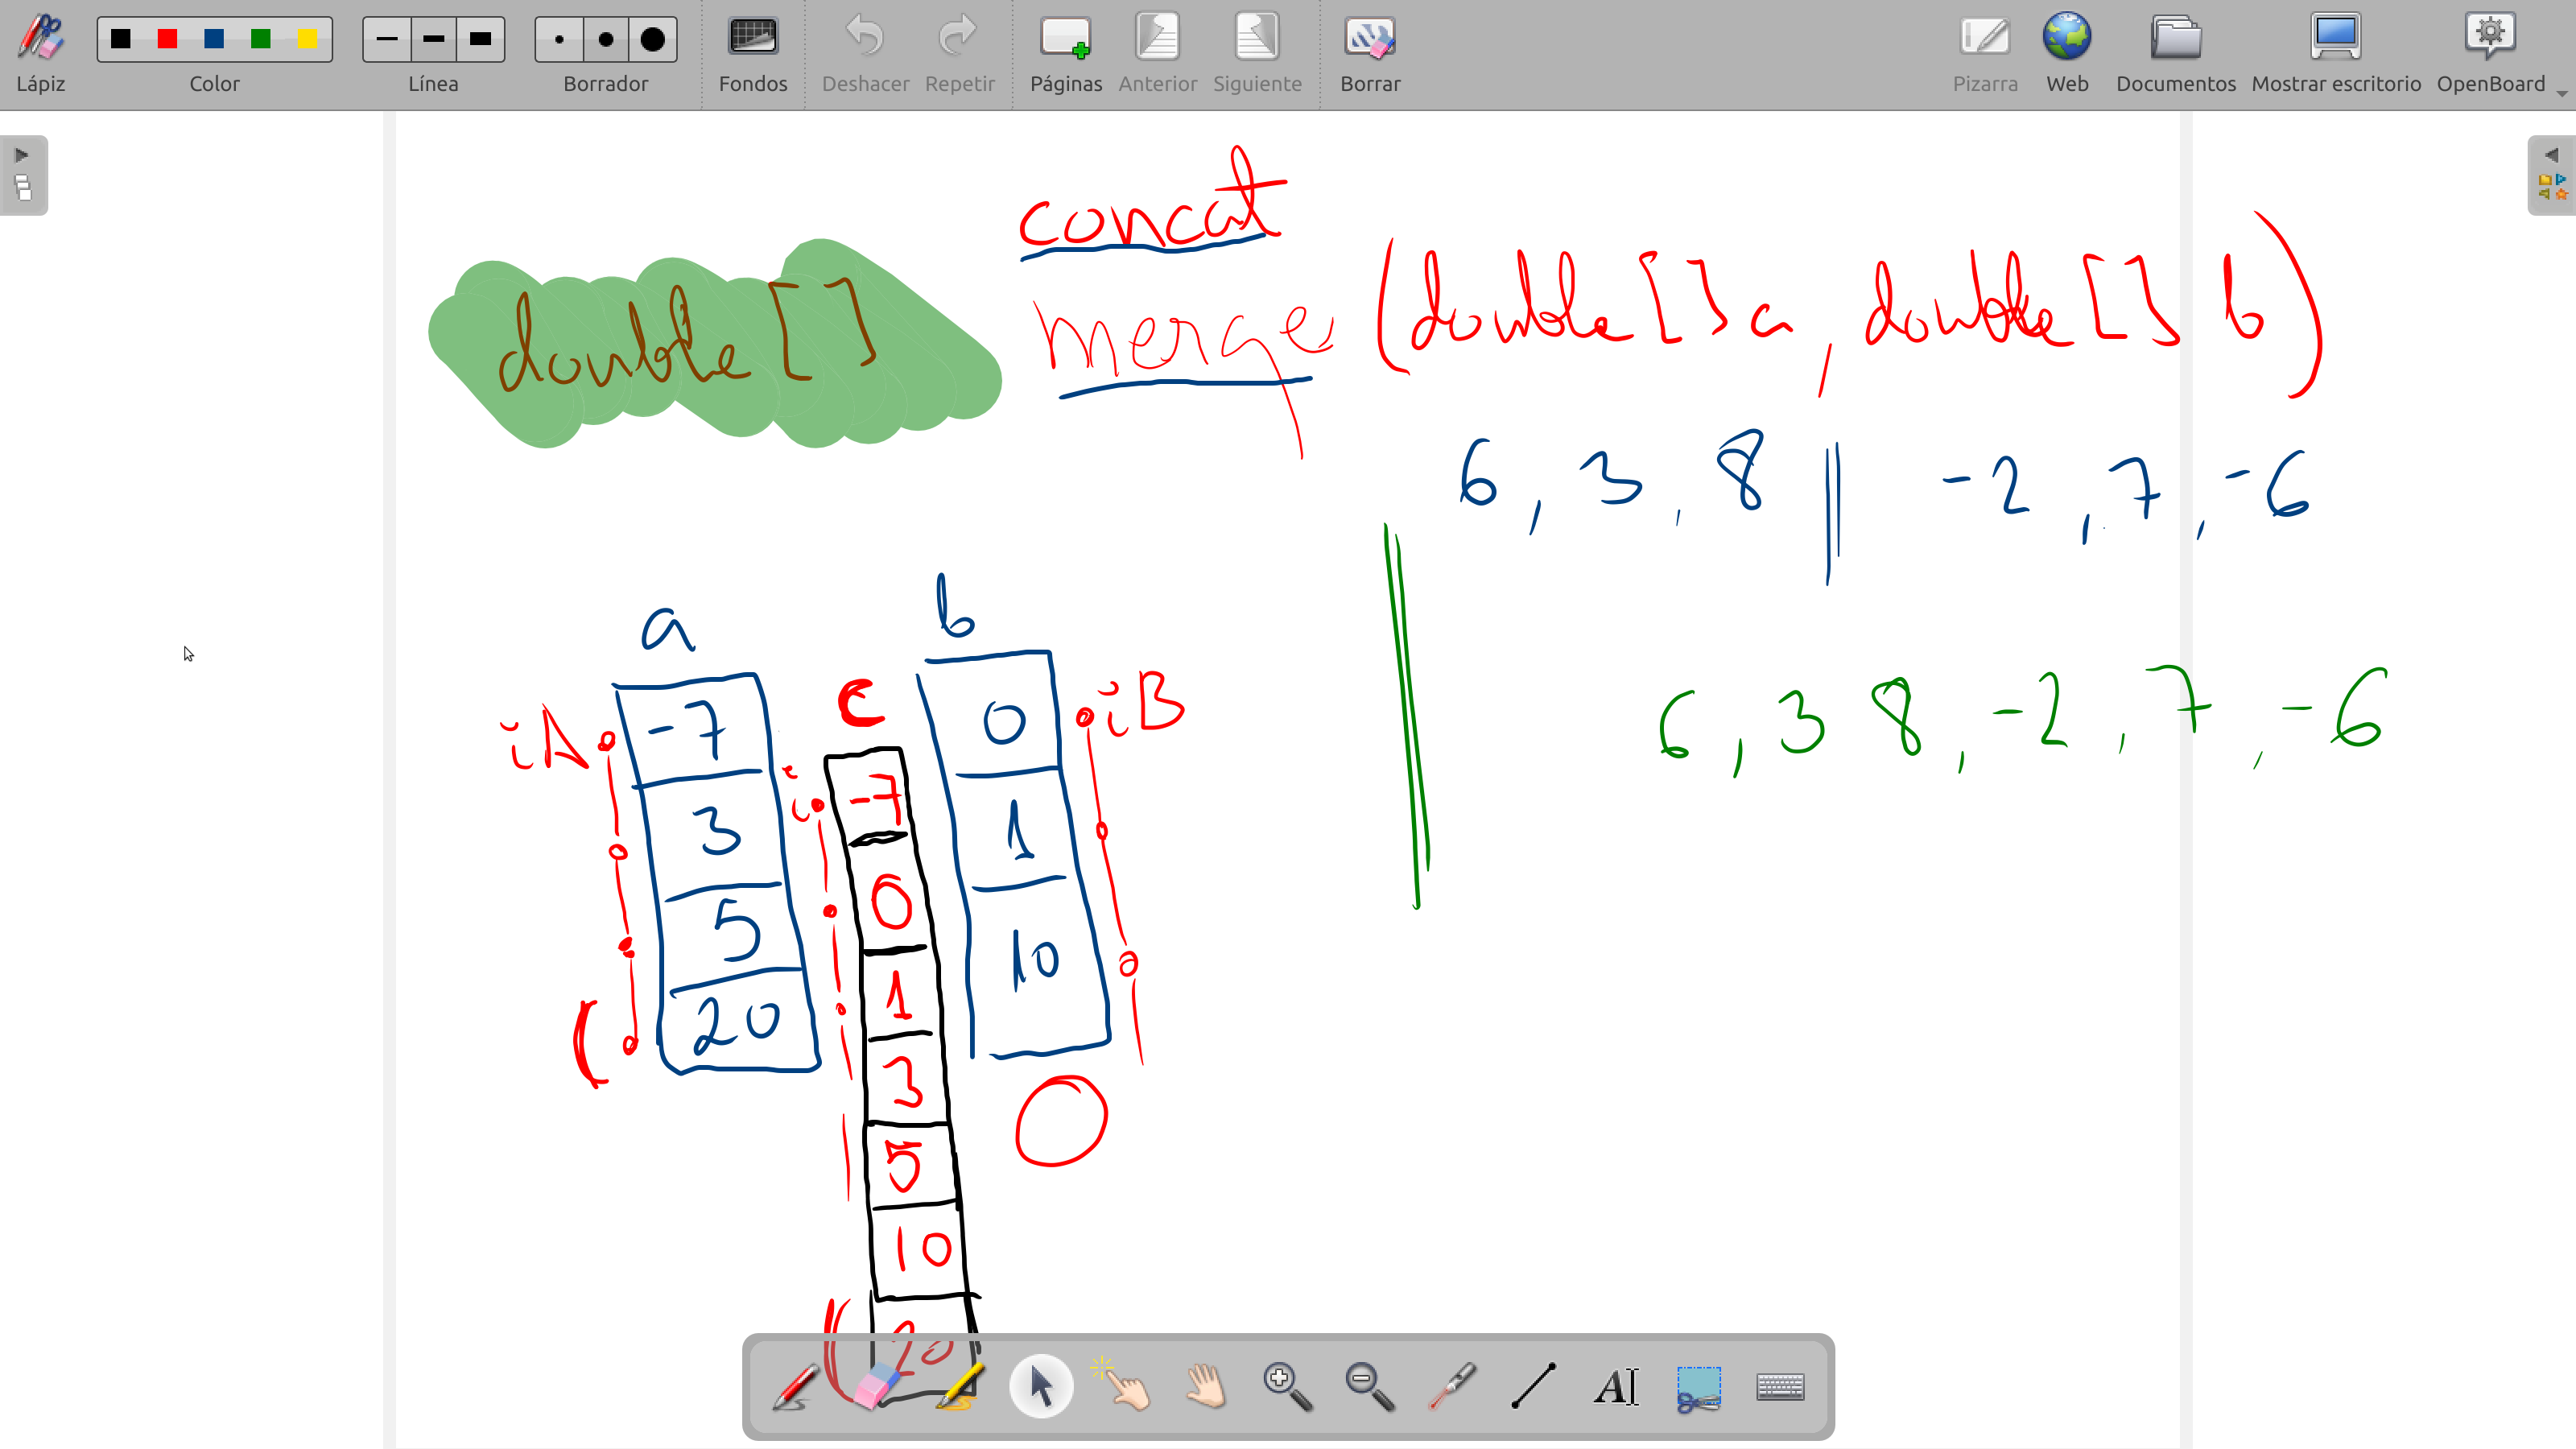 Lápiz Color Línea Borrador Fondos Deshacer Repetir Páginas Anterior Siguiente Borrar Pizarra Web Documentos Mostrar escritorio OpenBoard
concat
double [] merge (double [] a, double [] b)
6, 3, 8 || -2, 7, -6
a b
iA c iB
6, 3 8, -2, 7, -6
-7 0
i -7
3 1
0
5 10
1
20
3
5
10
20
AI